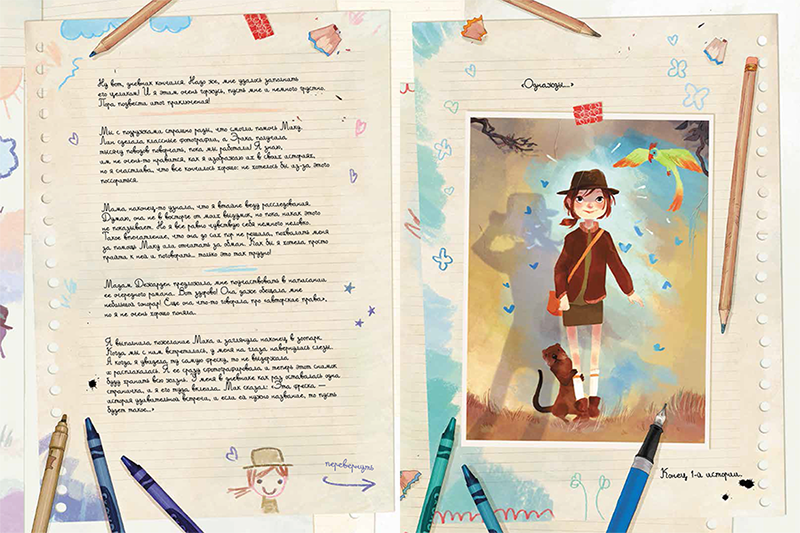 Ну вот, дневник кончился. Надо же, мне удалось заполнить
его целиком! И я этим очень горжусь, пусть мне и немного грустно.
Пора подвести итог приключения!
Мы с подружками страшно рады, что смогли помочь Мику.
Лин сделала классные фотографии, а Эрика получила
тысячу поводов поворчать, пока мы работали! Я знаю,
им не очень-то нравится, как я изображаю их в своих историях,
но я счастлива, что все кончилось хорошо: не хотелось бы из-за этого
поссориться.
Мама наконец-то узнала, что я втайне веду расследования.
Думаю, она не в восторге от моих выдумок, но пока никак этого
не показывает. Но я все равно чувствую себя немного неловко.
Такое впечатление, что она до сих пор не решила, похвалить меня
за помощь Мику или отчитать за обман. Как бы я хотела просто
прийти к ней и поговорить... только это так трудно!
Мадам Дежарден предложила мне поучаствовать в написании
ее очередного романа. Вот здорово! Она даже обещала мне
небольшой гонорар! Еще она что-то говорила про «авторские права»,
но я не очень хорошо поняла.
Я выполнила пожелание Мика и заглянула наконец в зоопарк.
Когда мы с ним встретились, у меня на глаза навернулись слезы.
А когда я увидела ту самую фреску, то не выдержала
и расплакалась. Я ее сразу сфотографировала, и теперь этот снимок
буду хранить всю жизнь. У меня в дневнике как раз оставалась одна
страничка, и я его туда вклеила. Мик сказал: «Эта фреска —
история удивительной встречи, и если ей нужно название, то пусть
будет такое...»
перевернуть
«Однажды...»
Конец 1-й истории.